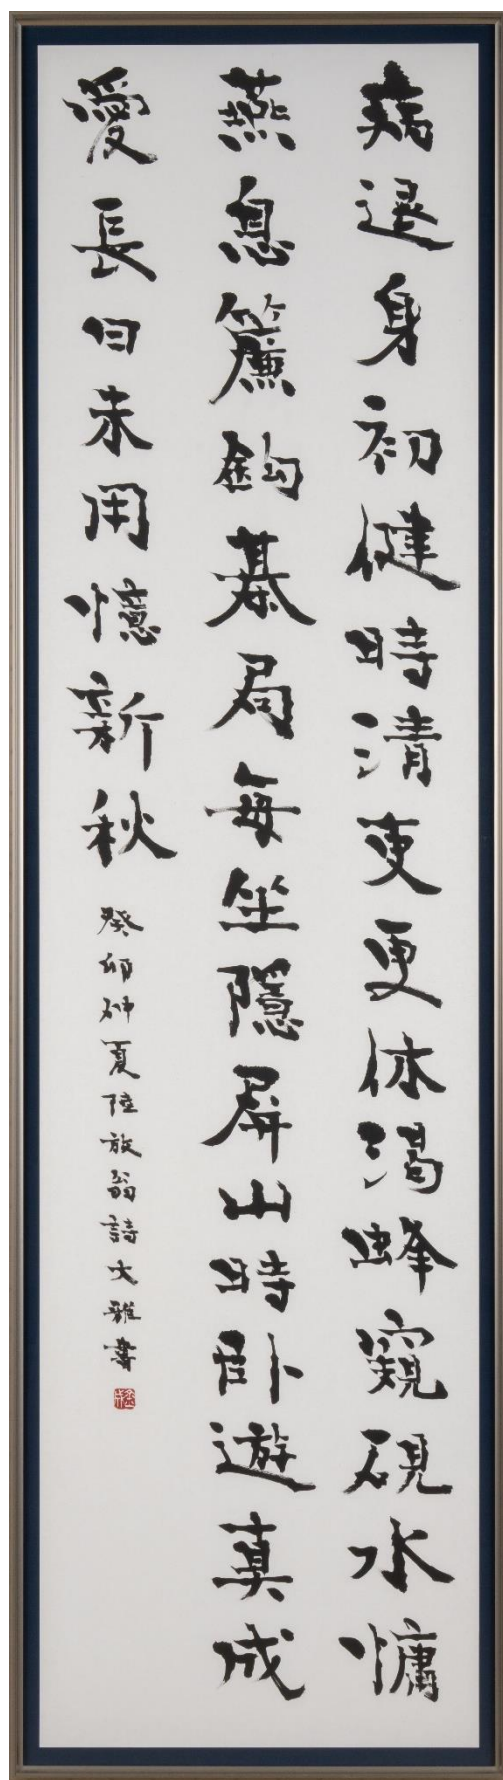 病退身初健時清吏更休渴蜂窺硯水慵
燕息簾鈎棊局每坐隱屏山時臥遊真成
愛長日未用憶新秋
癸卯仲夏陸放翁詩文雅書